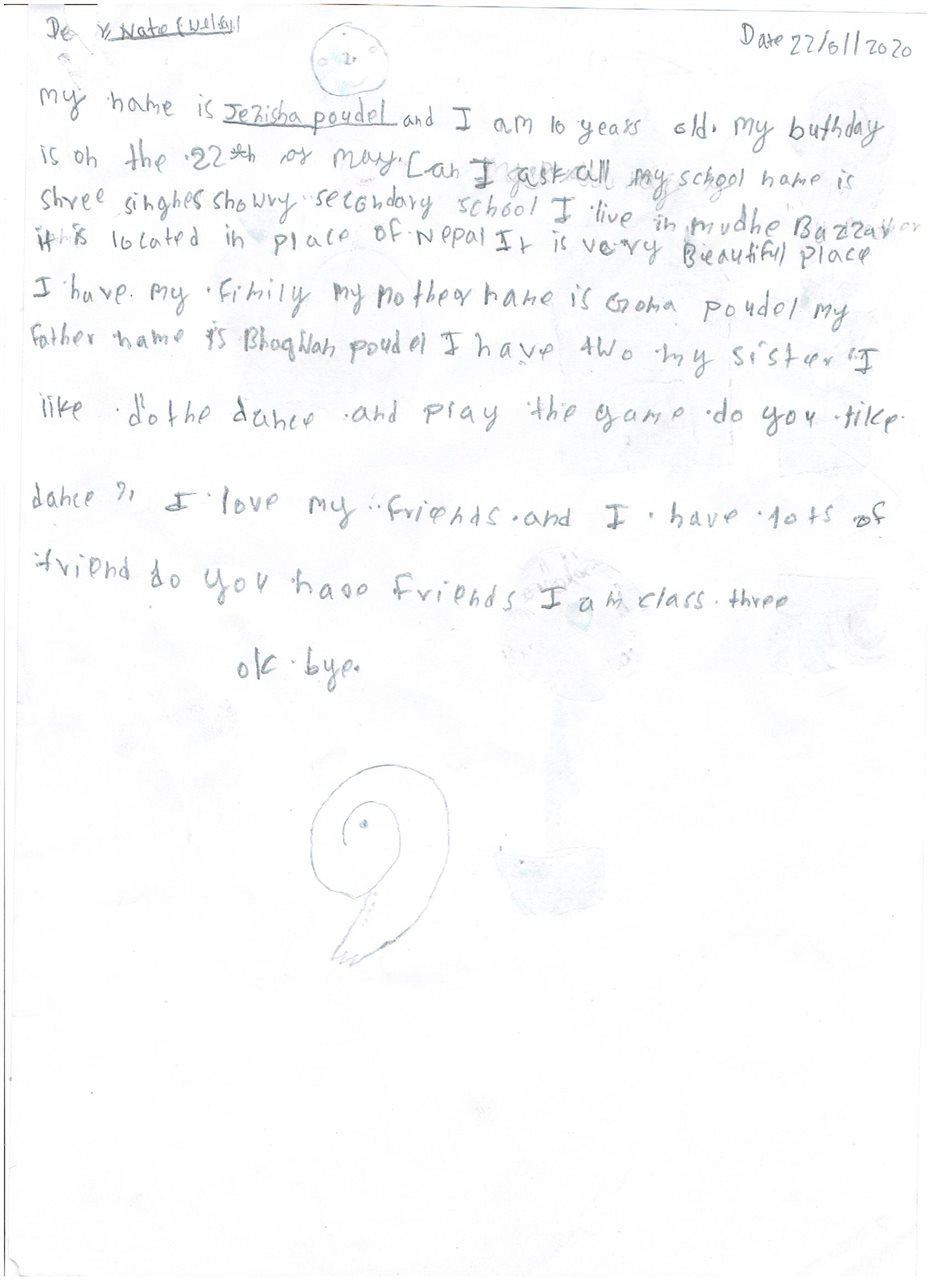 Date 22/01/2020
my name is Jezisha poudel and I am 10 years old. my buthday
is on the 22th of may. Can I ask all my school name is
shree singhes showry secondary school I live in mudhe Bazzar
it is located in place of Nepal It is very Beautiful place
I have my fimily my mother name is Goma poudel my
Father name is Bhagwan poudel I have two my sister I
like do the dance and play the game do you like
dance ? I love my friends and I have lots of
friend do you have friends I am class three
ok bye.